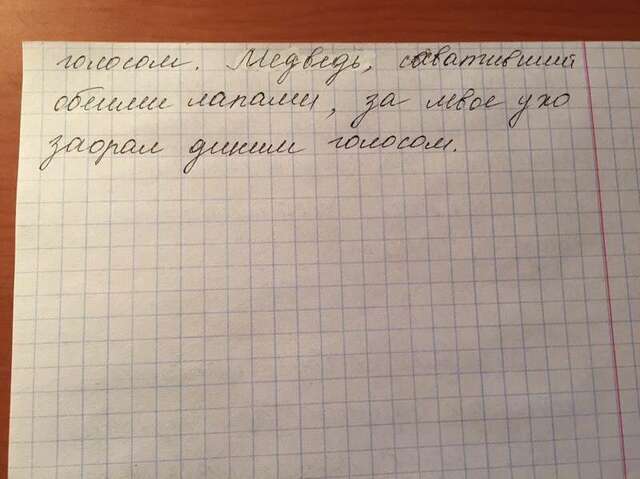 голосом. Медведь, сваативший
обеими лапами, за левое ухо
заорал диким голосом.